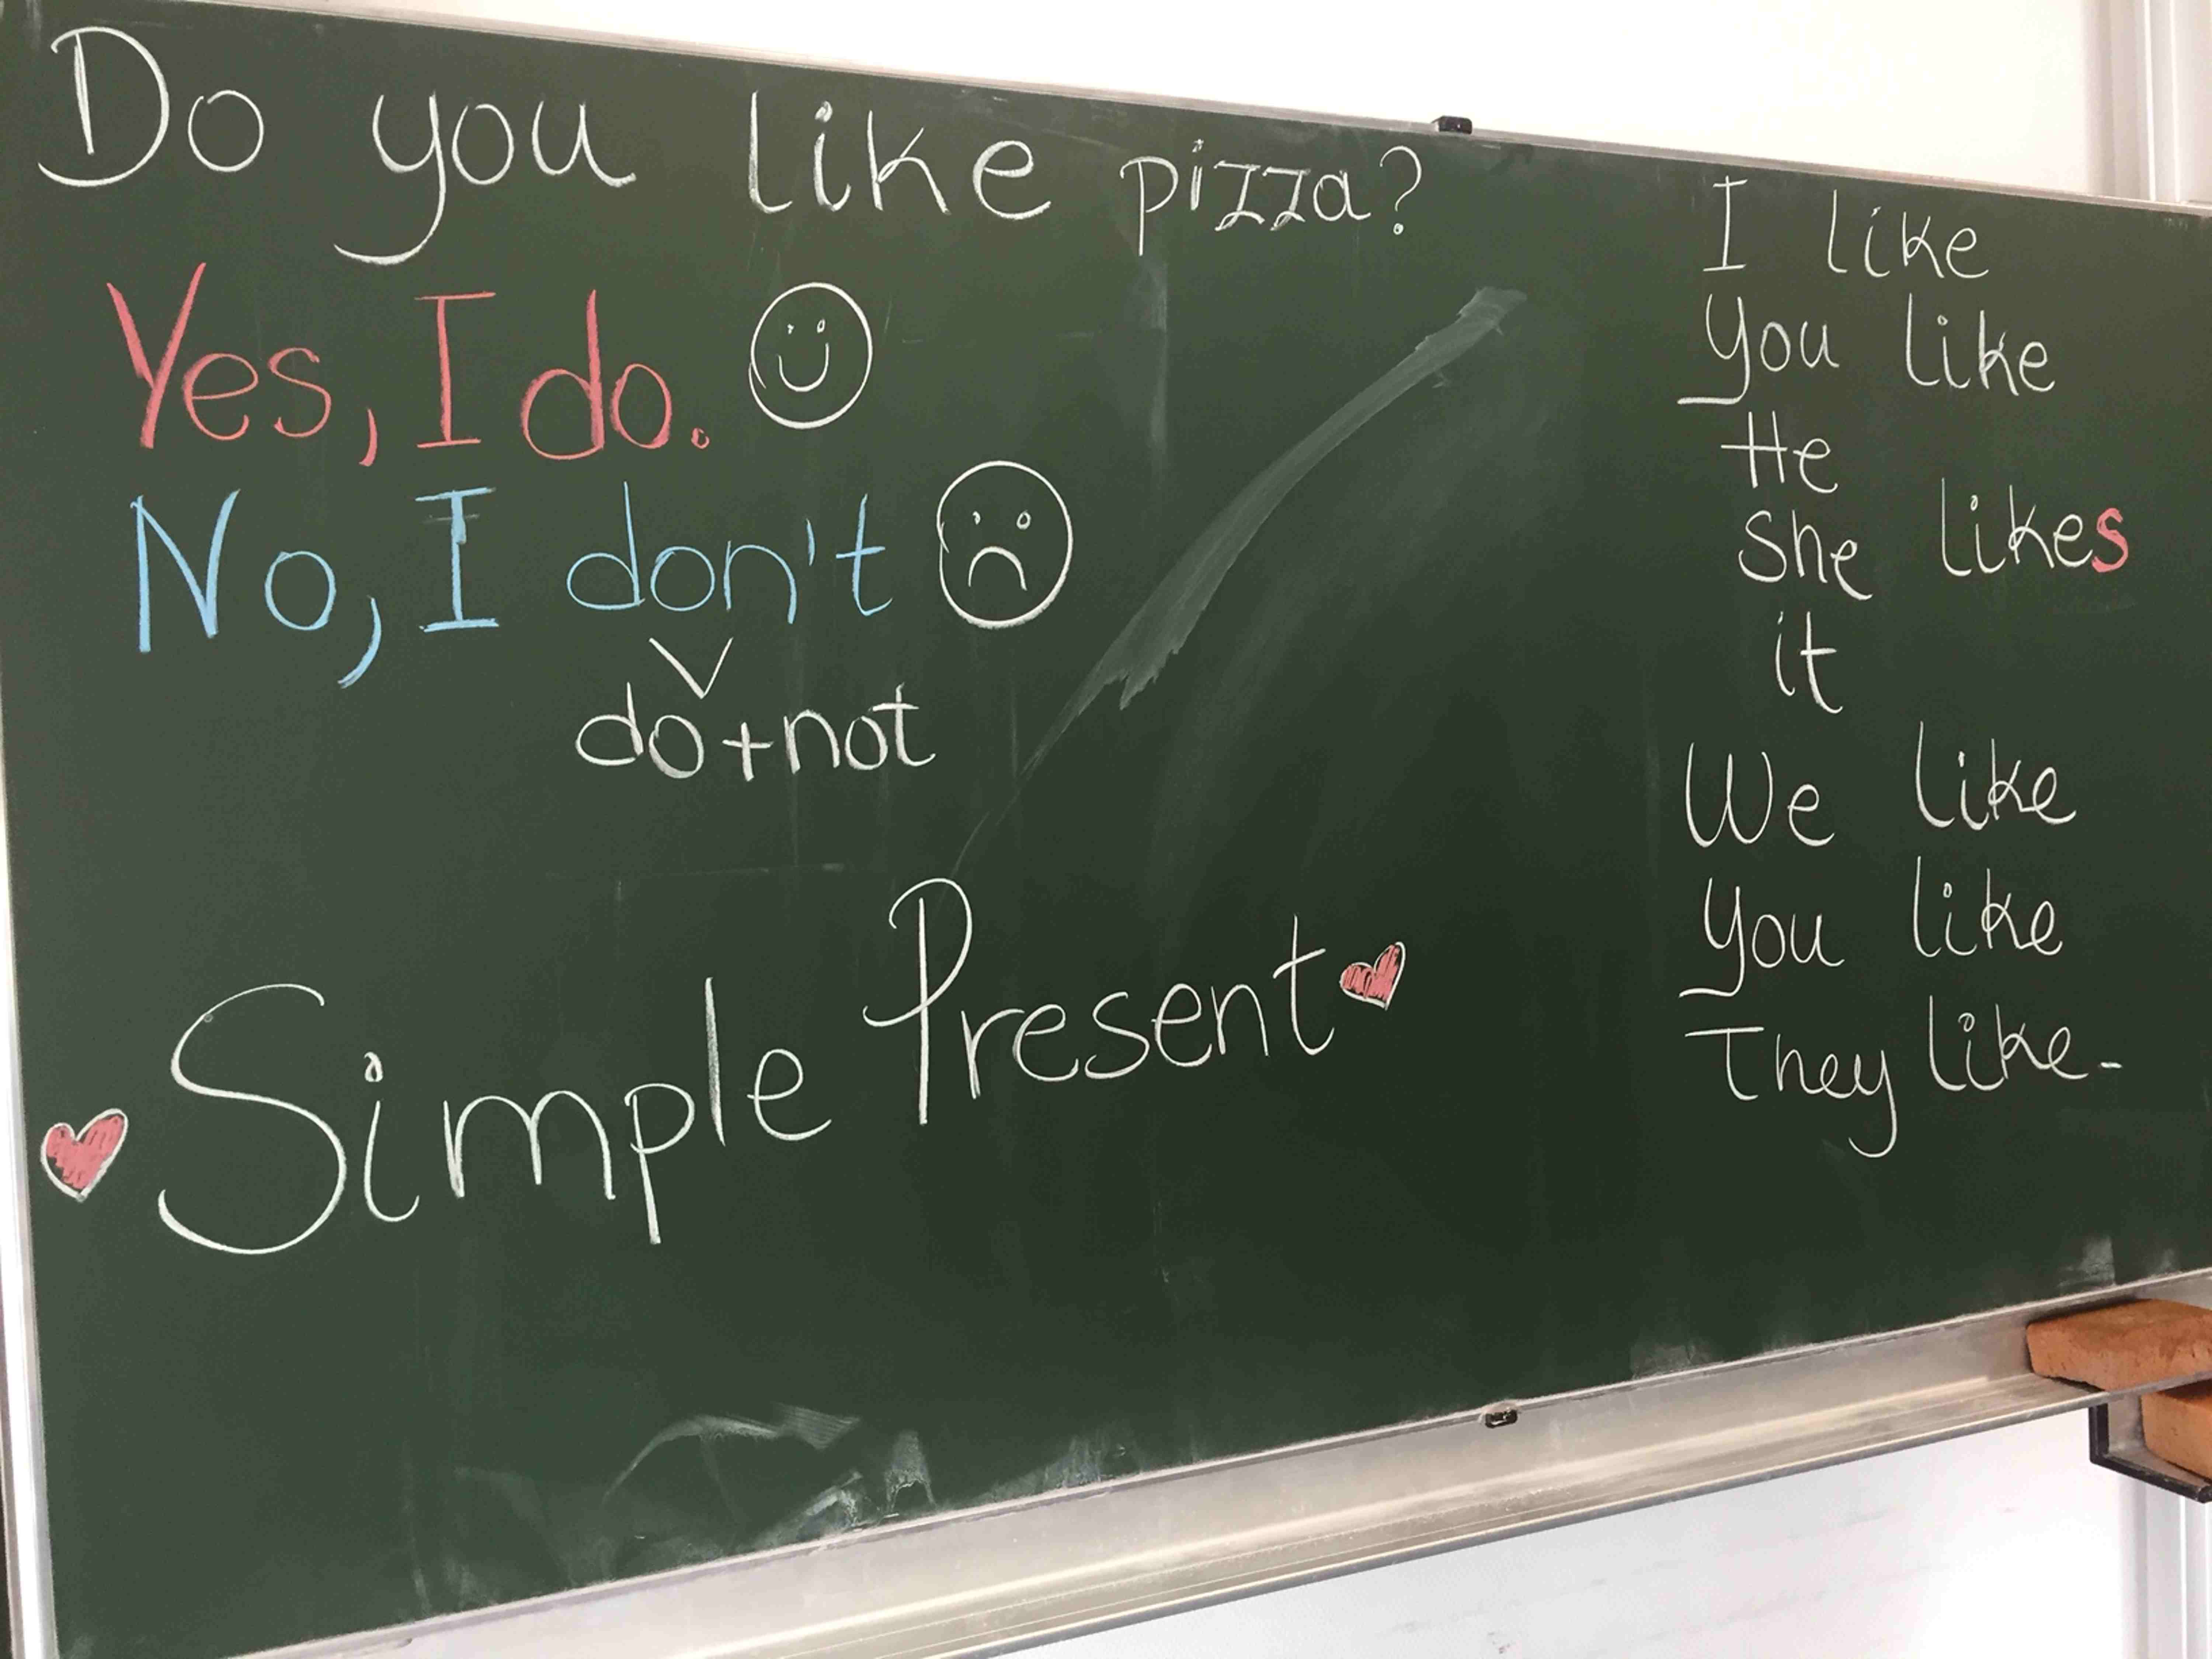 Do you like pizza?
Yes, I do.
No, I don't
do+not
Simple Present
I like
You like
He
She likes
it
We like
You like
They like-